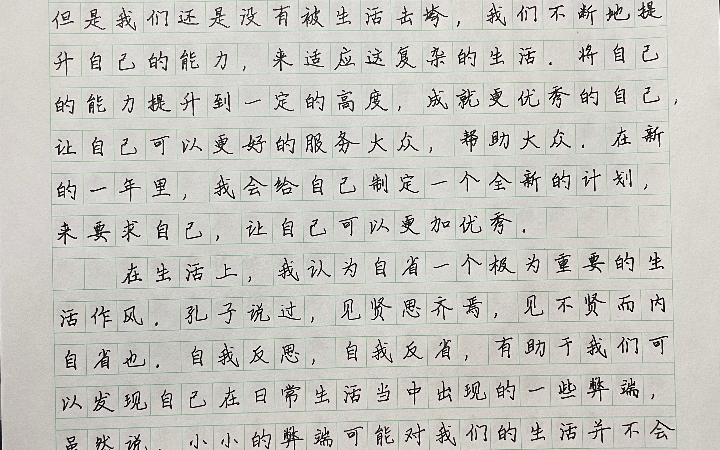 但是我们还是没有被生活击垮，我们不断地提
升自己的能力，来适应这复杂的生活．将自己
的能力提升到一定的高度，成就更优秀的自己，
让自己可以更好的服务大众，帮助大众．在新
的一年里，我会给自己制定一个全新的计划，
来要求自己，让自己可以更加优秀．
在生活上，我认为自省一个极为重要的生
活作风．孔子说过，见贤思齐焉，见不贤而内
自省也．自我反思，自我反省，有助于我们可
以发现自己在日常生活当中出现的一些弊端，
虽然说，小小的弊端可能对我们的生活并不会